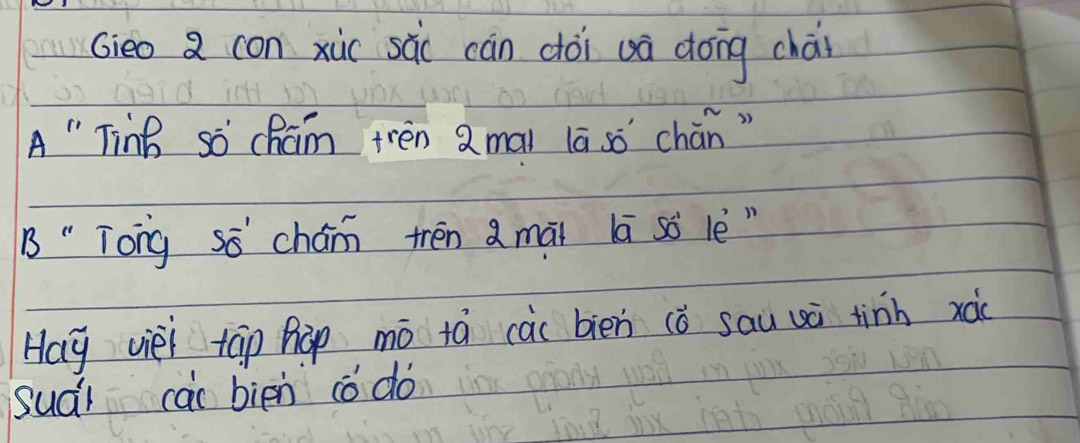 Gieo 2 con xúc sắc cân đối và đồng chất
A "Tính số chấm trên 2 mặt là số chẵn"
B "Tổng số chấm trên 2 mặt là số lẻ"
Hãy viết tập hợp mô tả các biến cố sau và tính xác
suất các biến cố đó